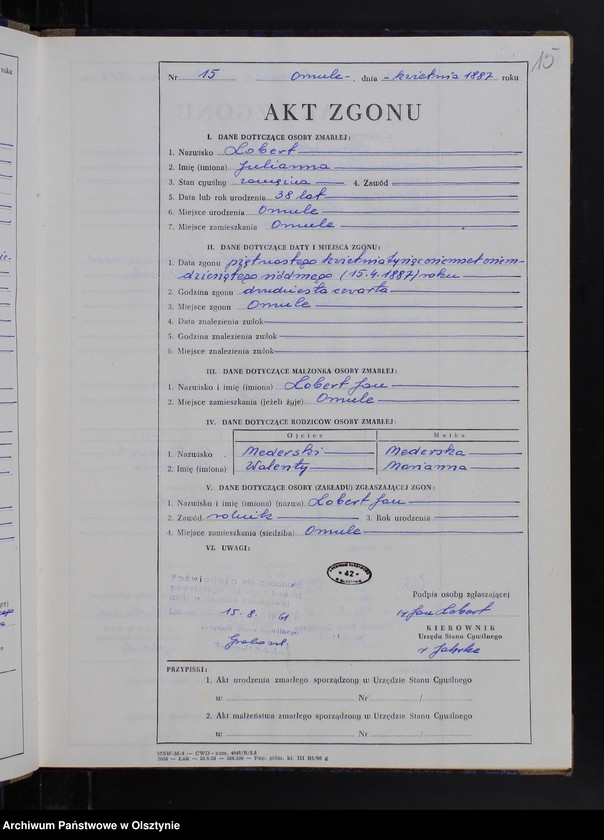 15
Nr 15 Omule, dnia - kwietnia 1887 roku
AKT ZGONU
I. DANE DOTYCZĄCE OSOBY ZMARŁEJ:
1. Nazwisko Lobert
2. Imię (imiona) Julianna
3. Stan cywilny zamężna 4. Zawód
5. Data lub rok urodzenia 38 lat
6. Miejsce urodzenia Omule
7. Miejsce zamieszkania Omule
II. DANE DOTYCZĄCE DATY I MIEJSCA ZGONU:
1. Data zgonu piętnastego kwietnia tysiącosiemsetosiem-
dziesiątego siódmego (15.4.1887) roku
2. Godzina zgonu dwudziesta czwarta
3. Miejsce zgonu Omule
4. Data znalezienia zwłok
5. Godzina znalezienia zwłok
6. Miejsce znalezienia zwłok
III. DANE DOTYCZĄCE MAŁŻONKA OSOBY ZMARŁEJ:
1. Nazwisko i imię (imiona) Lobert Jan
2. Miejsce zamieszkania (jeżeli żyje) Omule
IV. DANE DOTYCZĄCE RODZICÓW OSOBY ZMARŁEJ:
Ojciec Matka
1. Nazwisko Mederski Mederska
2. Imię (imiona) Walenty Marianna
V. DANE DOTYCZĄCE OSOBY (ZAKŁADU) ZGŁASZAJĄCEJ ZGON:
1. Nazwisko i imię (imiona) (nazwa) Lobert Jan
2. Zawód rolnik 3. Rok urodzenia
4. Miejsce zamieszkania (siedziba) Omule
VI. UWAGI:
42
15.8. 61
Urzędnik Stanu Cywilnego
Podpis osoby zgłaszającej
Jan Lobert
KIEROWNIK
Urzędu Stanu Cywilnego
PRZYPISKI:
1. Akt urodzenia zmarłego sporządzony w Urzędzie Stanu Cywilnego
w Nr /
2. Akt małżeństwa zmarłego sporządzony w Urzędzie Stanu Cywilnego
w Nr /
Archiwum Państwowe w Olsztynie